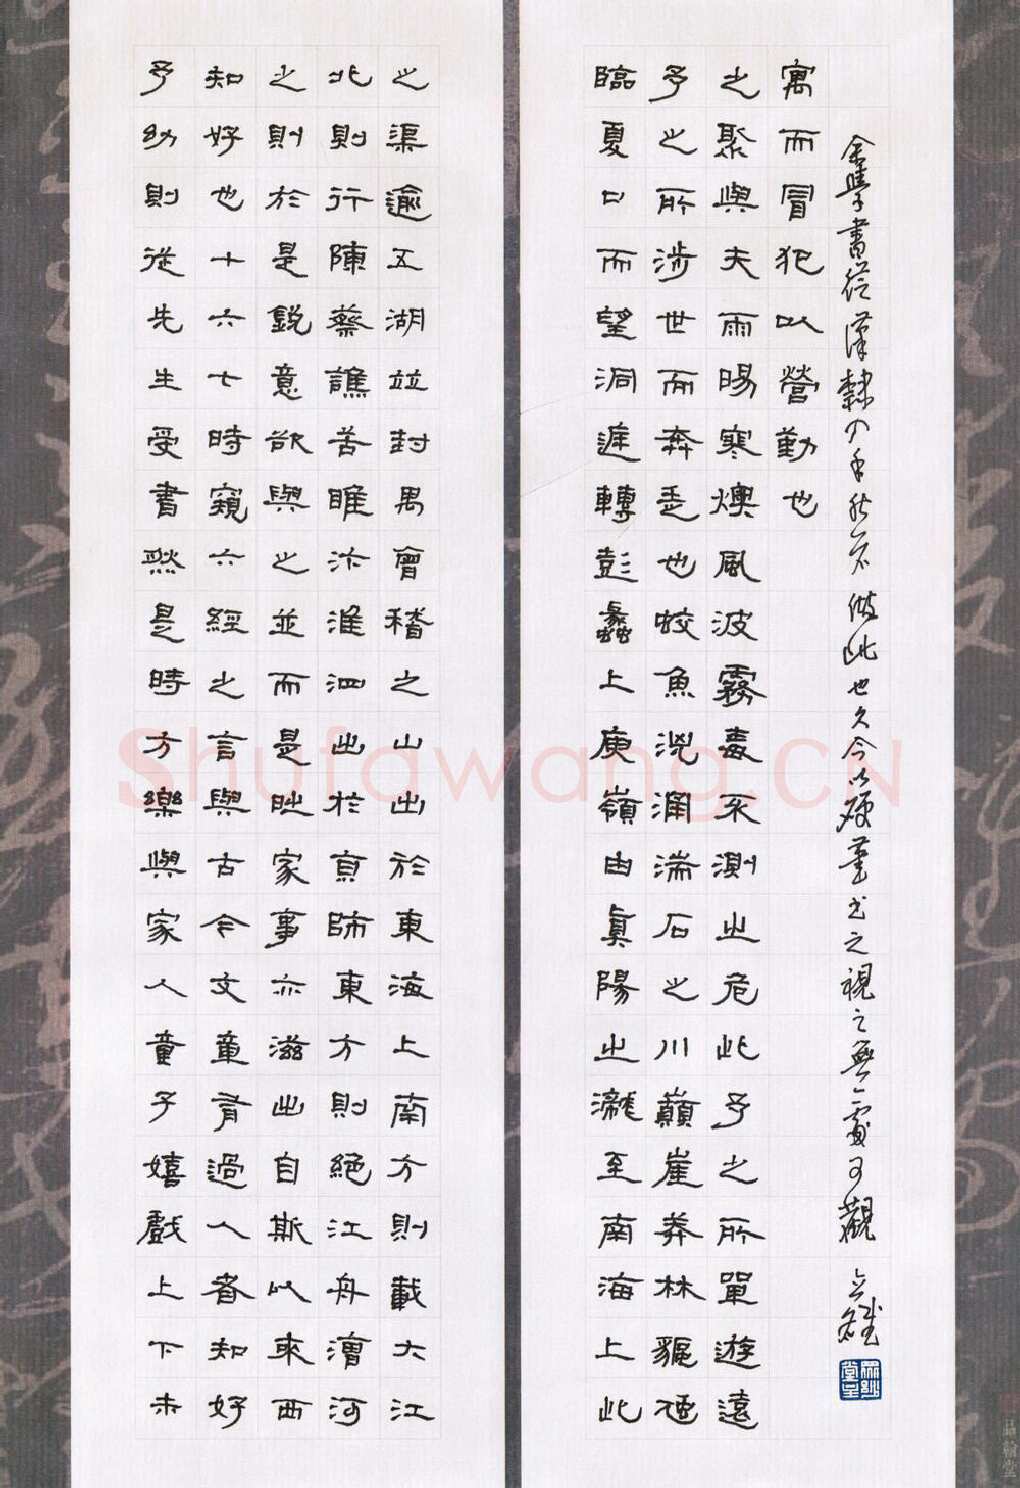 予幼則從先生受書然是時方樂與家人童子嬉戲上下未
知好也十六七時窺六經之言與古今文章有過人者知好
之則於是銳意欲與之並而是時家事亦滋出自斯以來西
北則行陳蔡譙苦睢汴淮泗出於京師東方則絕江舟漕河
之渠逾五湖並封禺會稽之山出於東海上南方則載大江
臨夏口而望洞庭轉彭蠡上庾嶺由真陽之瀧至南海上此
予之所涉世而奔走也蛟魚洶涌湍石之川巔崖莽林貙虺
之聚與夫雨暘寒燠風波霧毒不測之危此予之所單遊遠
寓而冒犯以營勤也
余學書從漢隸入手然不做此也久今以硬筆書之視之無一處可觀 立雄
Shufawang.CN
品翰堂